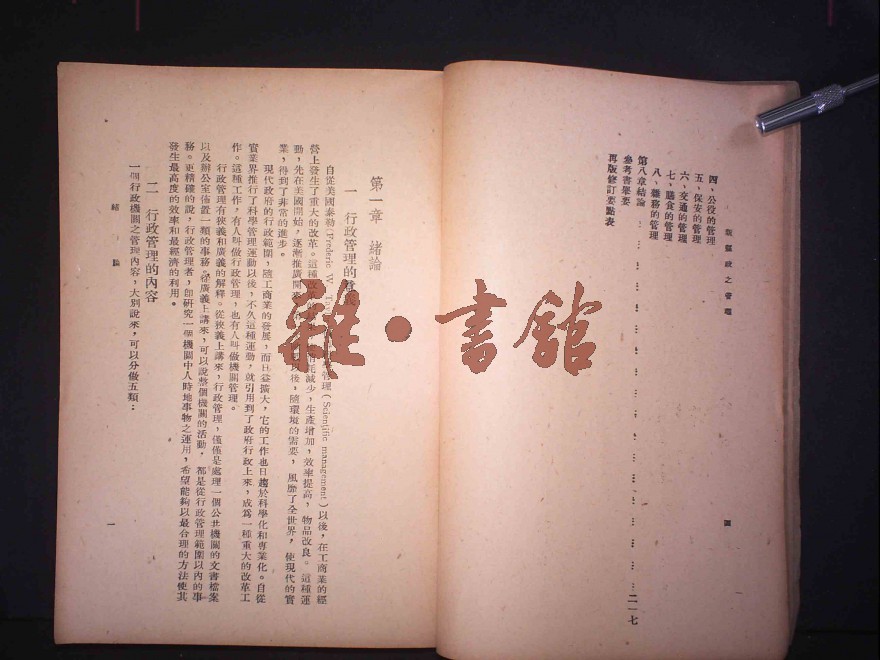 四、公役的管理
五、保安的管理
六、交通的管理
七、膳食的管理
八、雜務的管理
第八章 結論 二一七
參考書舉要
再版修訂要點表
四
第一章 緒論
一 行政管理的意義
自從美國泰勒(Frederic W. 管理(Scientific management)以後,在工商業的經
營上發生了重大的改革。這種改革的 消耗減少,生產增加,效率提高,物品改良。這種運
動,先在美國開始,逐漸推廣開來 以後,隨環境的需要,風靡了全世界,使現代的實
業,得到了非常的進步。
現代政府的行政範圍,隨工商業的發展,而日益擴大,它的工作也日趨於科學化和專業化。自從
實業界推行了科學管理運動以後,不久這種運動,就引用到了政府行政上來,成爲一種重大的改革工
作。這種工作,有人叫做行政管理,也有人叫做機關管理。
行政管理有狹義和廣義的解釋。從狹義上講來,行政管理,僅僅是處理一個公共機關的文書檔案
以及辦公室佈置一類的事務。從廣義上講來,可以說整個機關的活動,都是從行政管理範圍以內的事
務。更精確的說,行政管理者,卽研究一個機關中人時地事物之運用,希望能夠以最合理的方法使其
發生最高度的效率和最經濟的利用。
二 行政管理的內容
一個行政機關之管理內容,大別說來,可以分做五類:
緒論
一
雜·書館